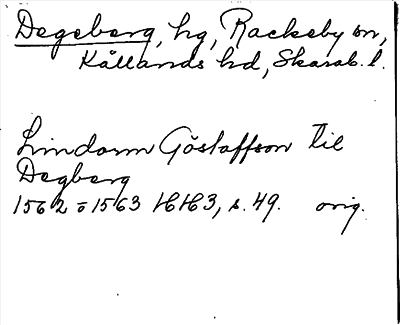 Degeberg, hg, Rackeby sn,
Kållands hd, Skarab. l.
Lindorm Göstaffson til
Degberg
1562 o 1563 HH3, s. 49. orig.